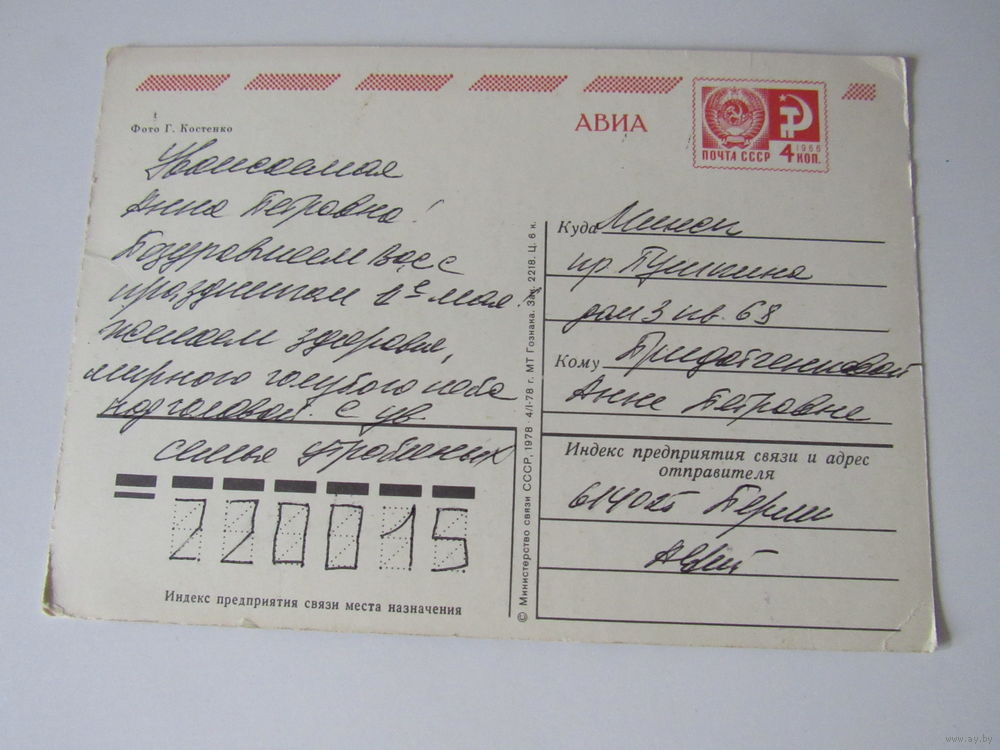 Фото Г. Костенко
АВИА
ПОЧТА СССР
1966
4 КОП.
Уважаемая
Анна Петровна!
Поздравляем Вас с
праздником 1ое мая!
желаем здоровья,
мирного голубого неба
над головой. С ув.
семья
220015
Индекс предприятия связи места назначения
© Министерство связи СССР, 1978 · 4/I-78 г. МТ Гознака. Зак. 2218. Ц. 6 к.
Куда Минск
пр Пушкина
дом 3 кв. 68
Кому
Анне Петровне
Индекс предприятия связи и адрес
отправителя
614025 Пермь
www.ay.by